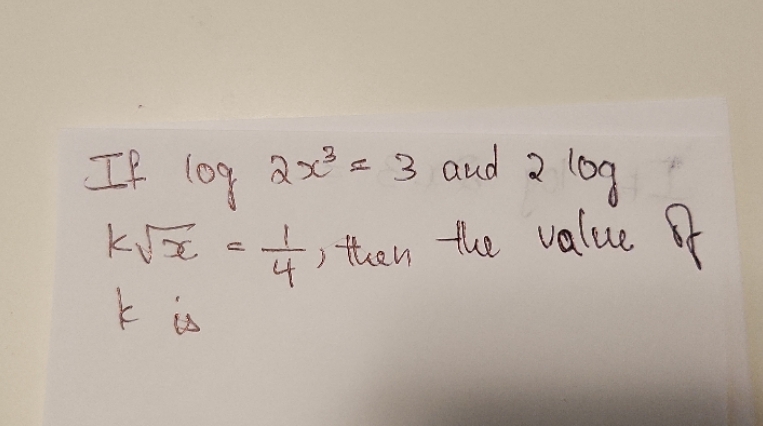 If log 2x³ = 3 and 2 log
k√x = 1/4, then the value of
k is